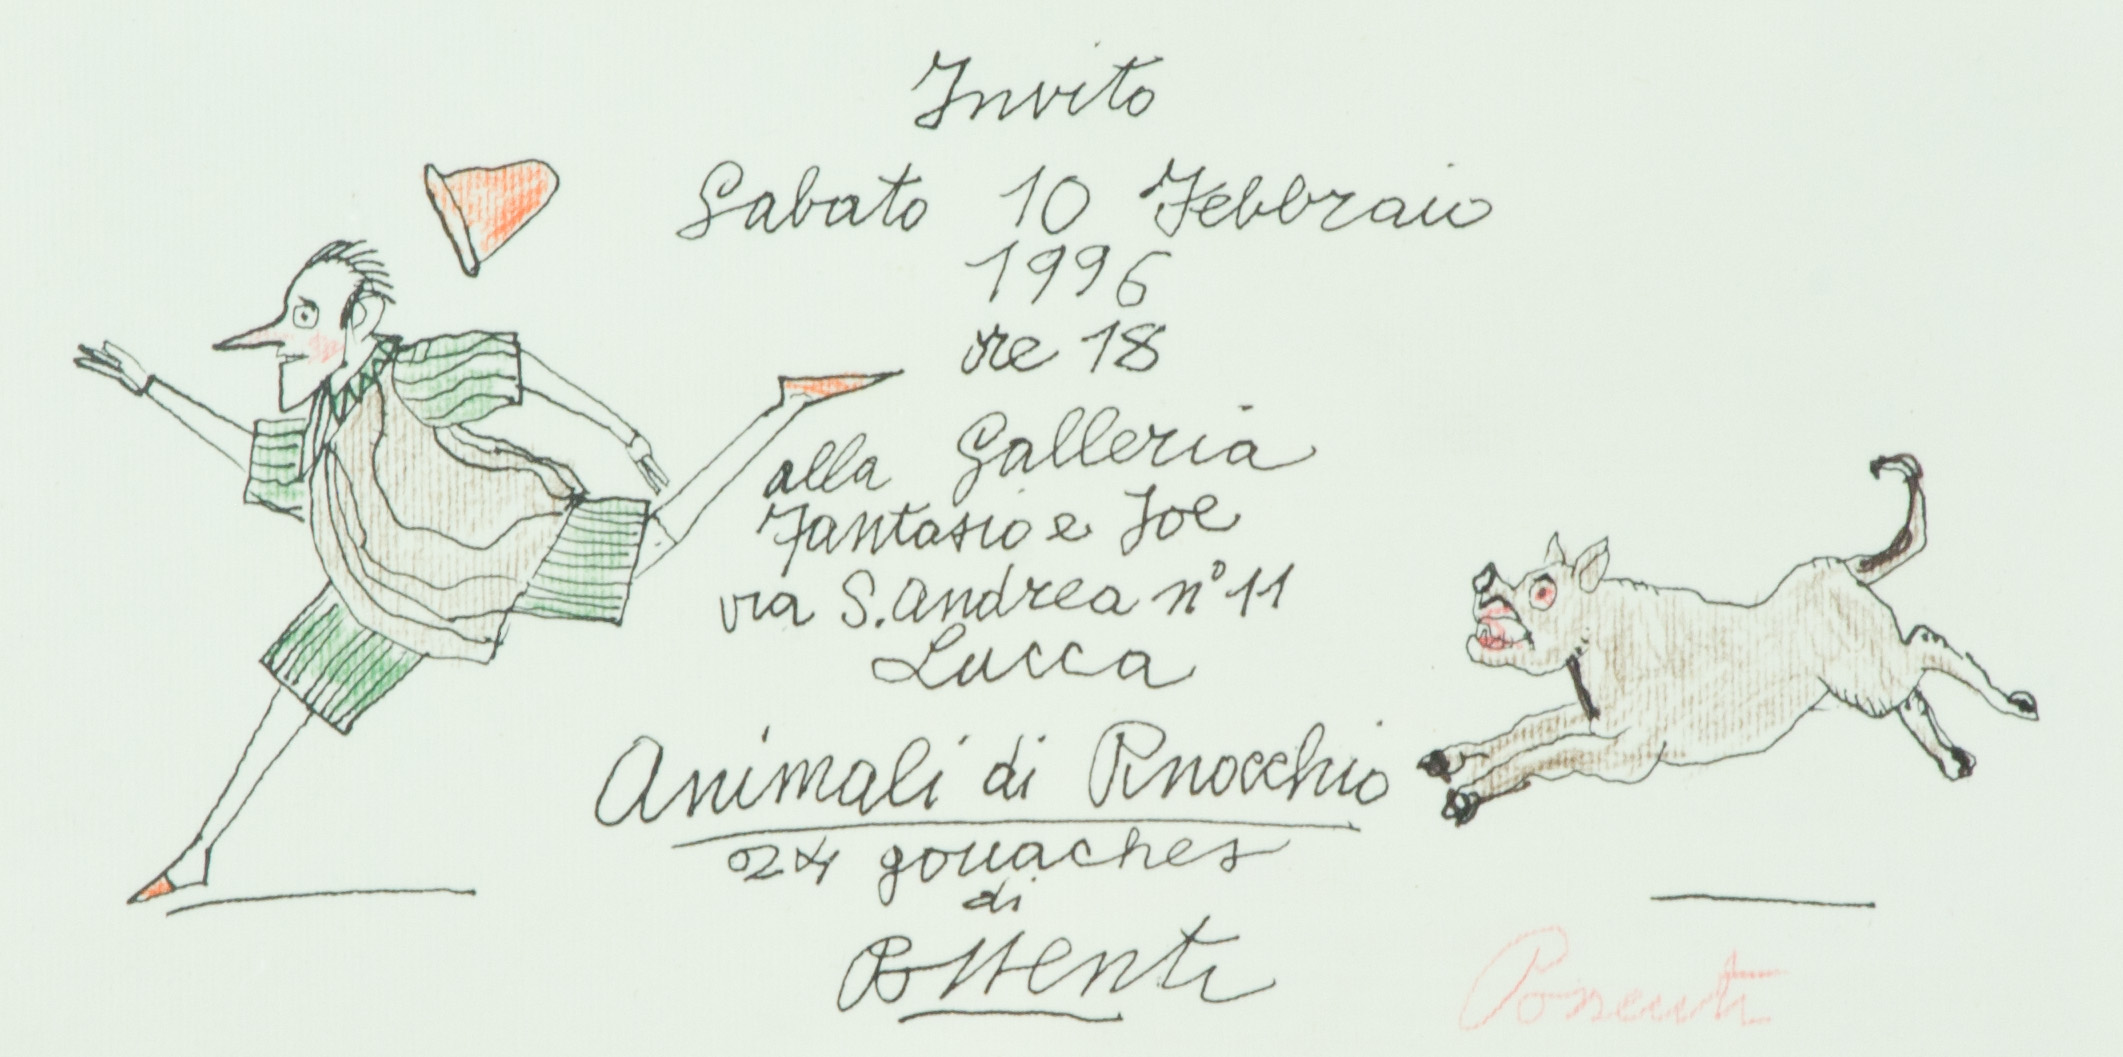 Invito
Sabato 10 Febbraio
1996
ore 18
alla Galleria
Fantasio e Joe
via S. Andrea n° 11
Lucca
Animali di Pinocchio
24 gouaches
di
Possenti
Possenti